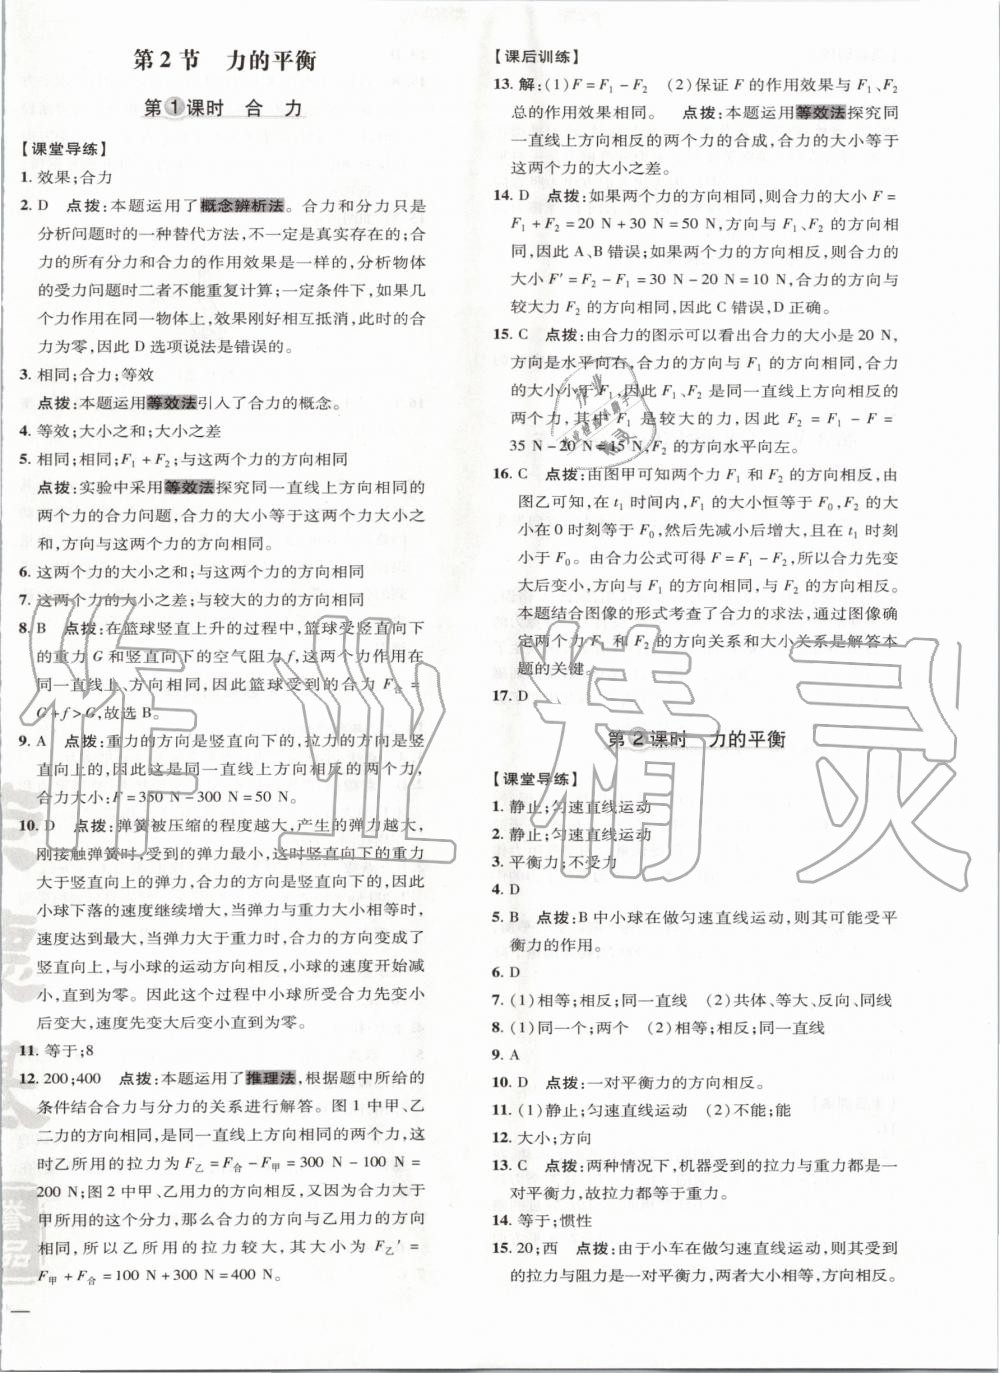 第2节　力的平衡
第1课时　合　力
【课堂导练】
1. 效果;合力
2. D　点拨:本题运用了概念辨析法。合力和分力只是
分析问题时的一种替代方法,不一定是真实存在的;合
力的所有分力和合力的作用效果是一样的,分析物体
的受力问题时二者不能重复计算;一定条件下,如果几
个力作用在同一物体上,效果刚好相互抵消,此时的合
力为零,因此 D 选项说法是错误的。
3. 相同;合力;等效
点拨:本题运用等效法引入了合力的概念。
4. 等效;大小之和;大小之差
5. 相同;相同;F₁+F₂;与这两个力的方向相同
点拨:实验中采用等效法探究同一直线上方向相同的
两个力的合力问题,合力的大小等于这两个力大小之
和,方向与这两个力的方向相同。
6. 这两个力的大小之和;与这两个力的方向相同
7. 这两个力的大小之差;与较大的力的方向相同
8. B　点拨:在篮球竖直上升的过程中,篮球受竖直向下
的重力 G 和竖直向下的空气阻力 f,这两个力作用在
同一直线上、方向相同,因此篮球受到的合力 F合 =
G+f>G,故选 B。
9. A　点拨:重力的方向是竖直向下的,拉力的方向是竖
直向上的,因此这是一对同一直线上方向相反的两个力,
合力大小:F=350 N-300 N=50 N。
10. D　点拨:弹簧被压缩的程度越大,产生的弹力越大,
刚接触弹簧时,受到的弹力最小,这时竖直向下的重力
大于竖直向上的弹力,合力的方向是竖直向下的,因此
小球下落的速度继续增大,当弹力与重力大小相等时,
速度达到最大,当弹力大于重力时,合力的方向变成了
竖直向上,与小球的运动方向相反,小球的速度开始减
小,直到为零。因此这个过程中小球所受合力先变小
后变大,速度先变大后变小直到为零。
11. 等于;8
12. 200;400　点拨:本题运用了推理法,根据题中所给的
条件结合合力与分力的关系进行解答。图 1 中甲、乙
二力的方向相同,是同一直线上方向相同的两个力,这
时乙所用的拉力为 F乙=F合-F甲=300 N-100 N=
200 N;图 2 中甲、乙用力的方向相反,又因为合力大于
甲所用的这个分力,那么合力的方向与乙用力的方向
相同,所以乙所用的拉力较大,其大小为 F乙′=
F甲+F合=100 N+300 N=400 N。
【课后训练】
13. 解:(1)F=F₁-F₂　(2)保证 F 的作用效果与 F₁、F₂
总的作用效果相同。　点拨:本题运用等效法探究同
一直线上方向相反的两个力的合成,合力的大小等于
这两个力的大小之差。
14. D　点拨:如果两个力的方向相同,则合力的大小 F=
F₁+F₂=20 N+30 N=50 N,方向与 F₁、F₂ 的方向相
同,因此 A、B 错误;如果两个力的方向相反,则合力的
大小 F′=F₂-F₁=30 N-20 N=10 N,合力的方向与
较大力 F₂ 的方向相同,因此 C 错误,D 正确。
15. C　点拨:由合力的图示可以看出合力的大小是 20 N,
方向是水平向右,合力的方向与 F₁ 的方向相同,合力
的大小小于 F₁,因此 F₁、F₂ 是同一直线上方向相反的
两个力,其中 F₁ 是较大的力,因此 F₂=F₁-F=
35 N-20 N=15 N,F₂ 的方向水平向左。
16. C　点拨:由图甲可知两个力 F₁ 和 F₂ 的方向相反,由
图乙可知,在 t₁ 时间内,F₁ 的大小恒等于 F₀,F₂ 的大
小在 0 时刻等于 F₀,然后先减小后增大,且在 t₁ 时刻
小于 F₀。由合力公式可得 F=F₁-F₂,所以合力先变
大后变小,方向与 F₁ 的方向一致。
本题结合图像的形式考查了合力的求法,通过图像确
定两个力 F₁ 和 F₂ 的方向关系和大小关系是解答本
题的关键。
17. D
第2课时　力的平衡
【课堂导练】
1. 静止;匀速直线运动
2. 静止;匀速直线运动
3. 平衡力;不受力
4. D
5. B　点拨:B 中小球在做匀速直线运动,则其可能受平
衡力的作用。
6. D
7. (1)相等;相反;同一直线　(2)共体、等大、反向、同线
8. (1)同一个;两个　(2)相等;相反;同一直线
9. A
10. D　点拨:一对平衡力的方向相反。
11. (1)静止;匀速直线运动　(2)不能;能
12. 大小;方向
13. C　点拨:两种情况下,机器受到的拉力与重力都是一
对平衡力,故拉力都等于重力。
14. 等于;惯性
15. 20;西　点拨:由于小车在做匀速直线运动,则其受到
的拉力与阻力是一对平衡力,两者大小相等,方向相反。
作业精灵